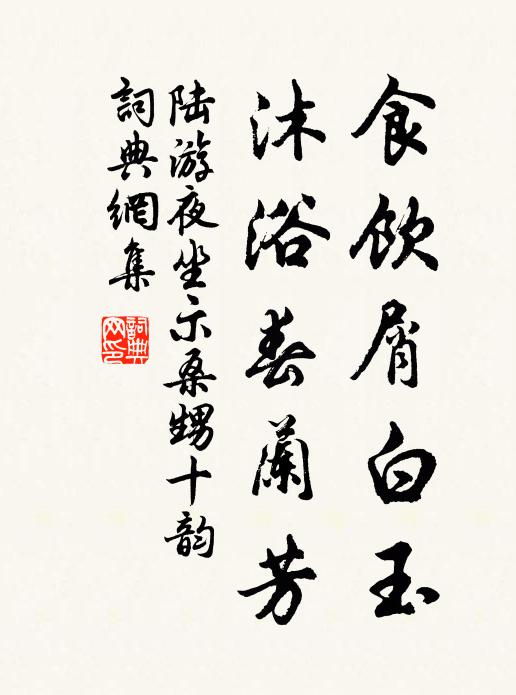 食飲屑白玉
沐浴春蘭芳
陆游夜坐示桑甥十韵
詞典網集
詞典网印